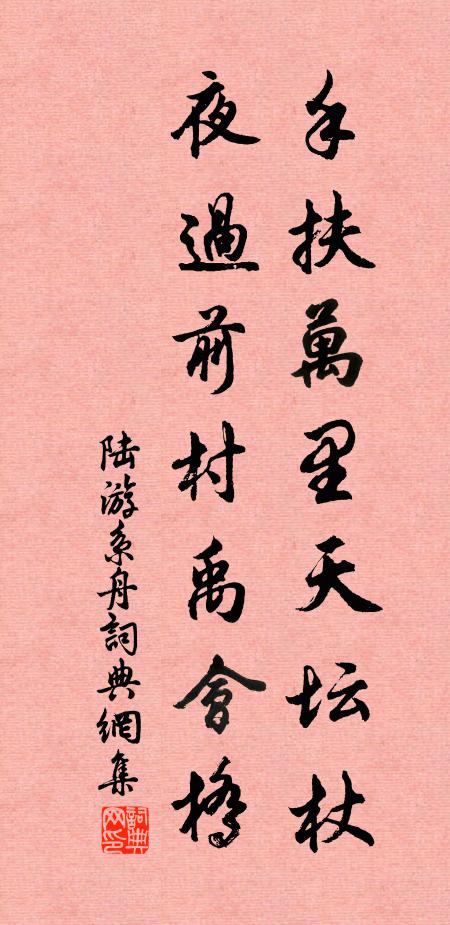 手扶萬里天坛杖
夜過前村禹會橋
陆游系舟詞典網集
詞典網印